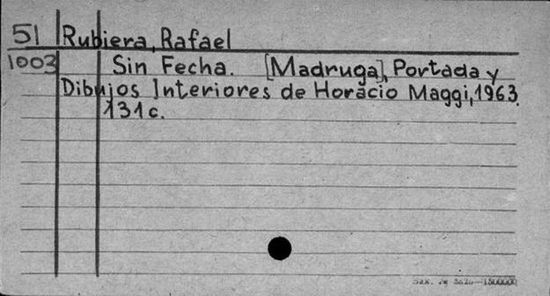 51 Rubiera, Rafael
1003 Sin Fecha. [Madruga], Portada y
Dibujos Interiores de Horacio Maggi, 1963.
131c.